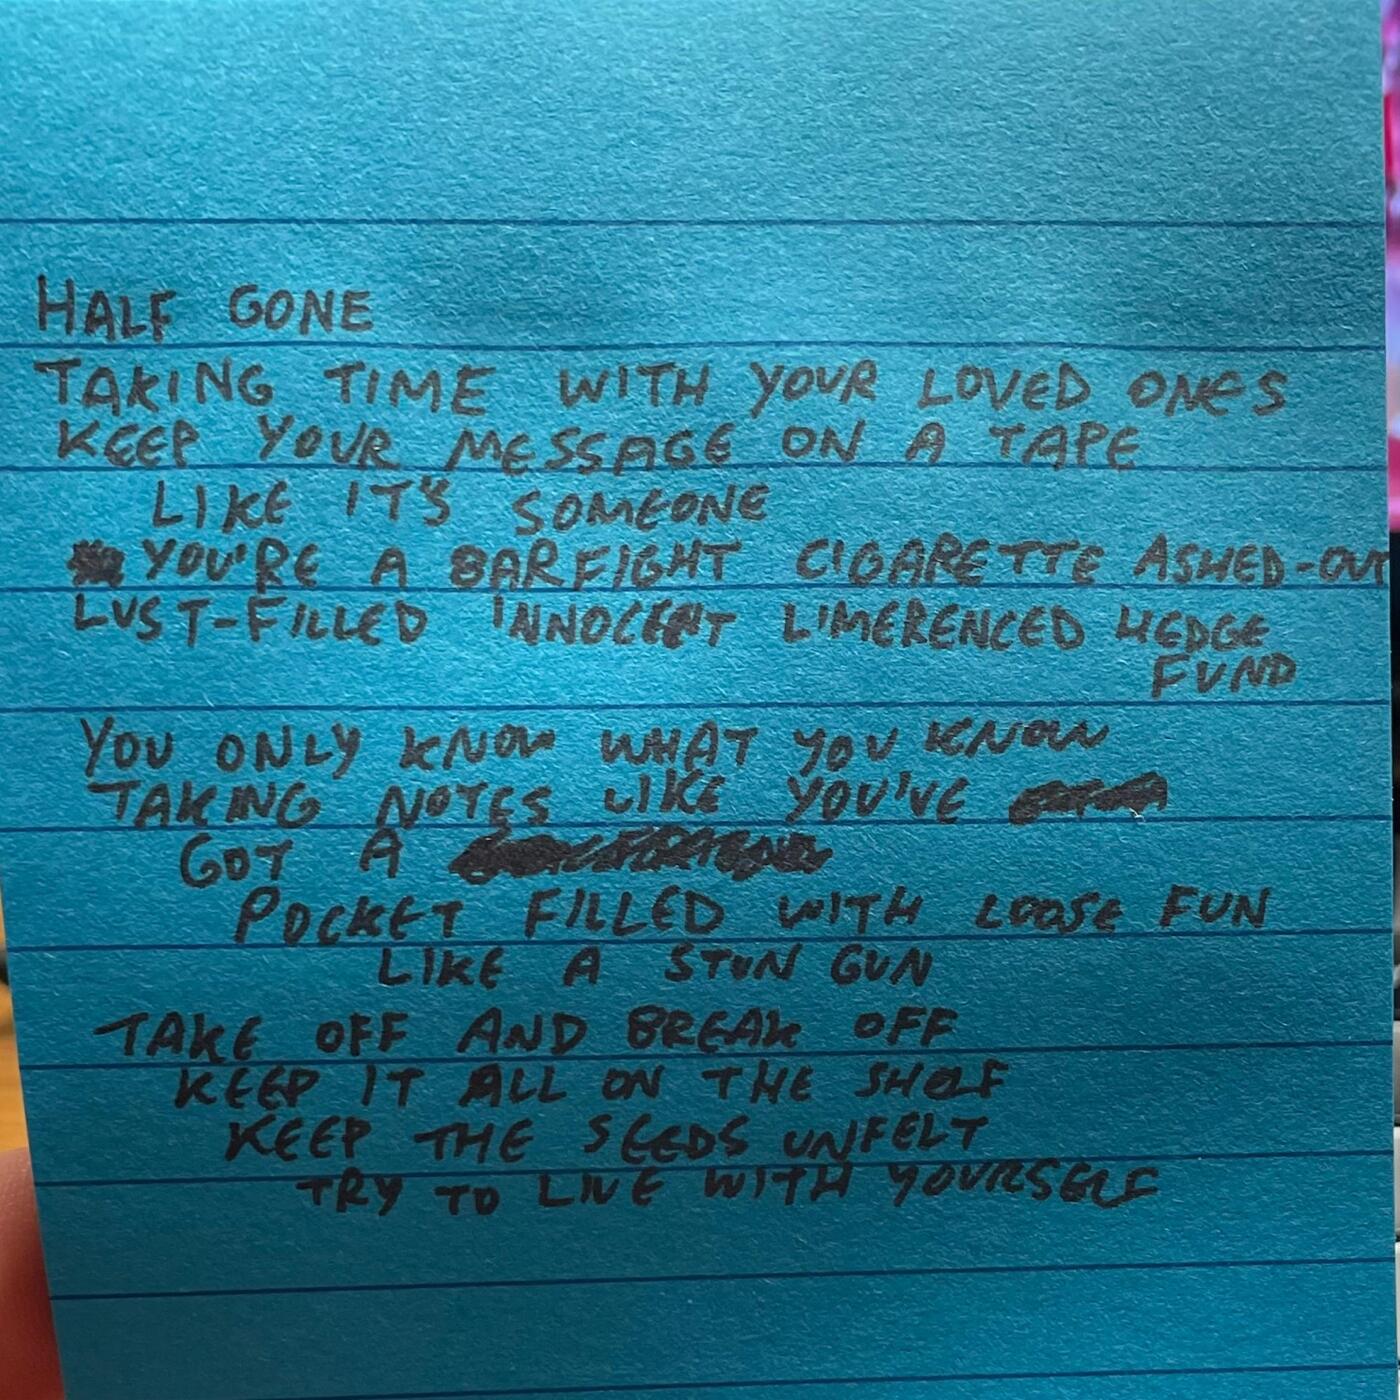 HALF GONE
TAKING TIME WITH YOUR LOVED ONES
KEEP YOUR MESSAGE ON A TAPE
LIKE IT'S SOMEONE
YOU'RE A BARFIGHT CIGARETTE ASHED-OUT
LUST-FILLED INNOCENT LIMERENCED HEDGE
FUND
YOU ONLY KNOW WHAT YOU KNOW
TAKING NOTES LIKE YOU'VE
GOT A
POCKET FILLED WITH LOOSE FUN
LIKE A STUN GUN
TAKE OFF AND BREAK OFF
KEEP IT ALL ON THE SHELF
KEEP THE SEEDS UNFELT
TRY TO LIVE WITH YOURSELF